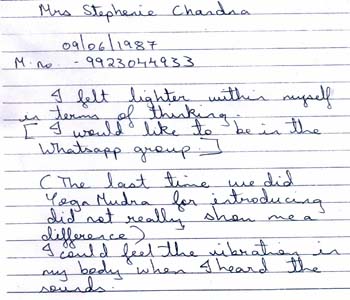 Mrs Stephenie Chandra
09/06/1987
M. no. - 9923044933
I felt lighter within myself
in terms of thinking.
[ I would like to be in the
Whatsapp group. ]
(The last time we did
Yoga Mudra for introducing
did not really show me a
difference)
I could feel the vibration in
my body when I heard the
sounds.